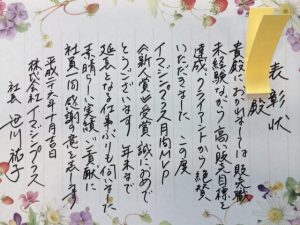 表彰状
殿
貴殿におかれましては販売職
未経験ながら高い販売目標を
達成、クライアントから絶賛
いただきました この度
イマジンプラス月間MVP
会新人賞受賞 誠におめで
とうございます 年末まで
延長となる仕事ぶりも伺いました
素晴らしい実績と貢献に
社員一同 感謝の意を表します
平成二十 年十月吉日
株式会社イマジンプラス
社長 笹川祐子